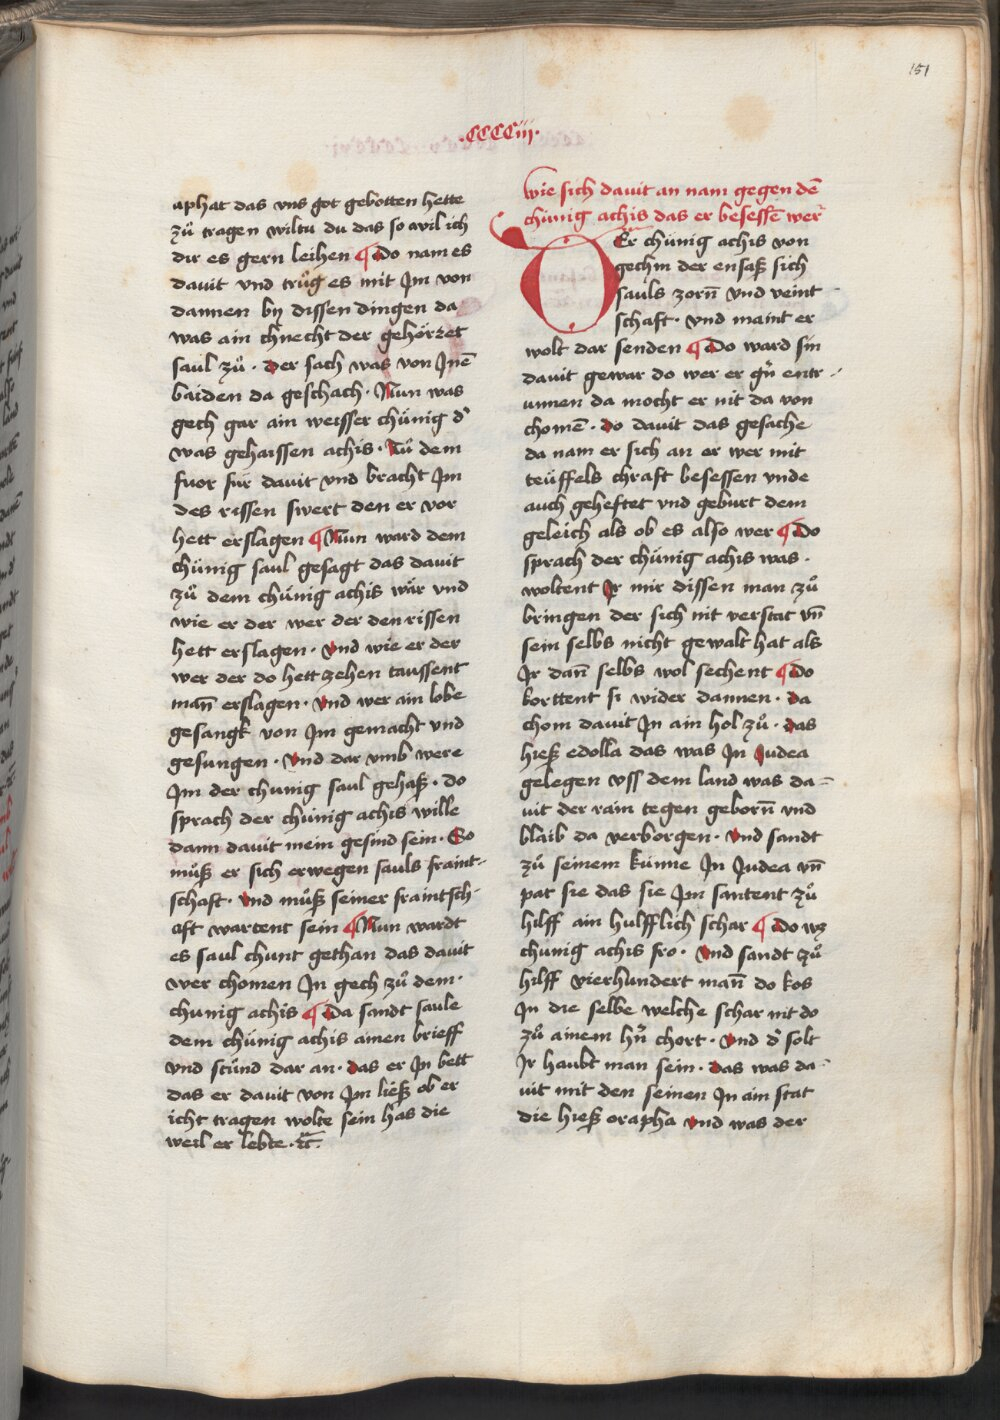 151
·CCCCiij·
aphat das vns got gebotten hette
zů tragen wiltu du das so wil ich
dir es gern leihen ¶ Do nam es
dauit vnd trůg es mit Jm von
dannen bÿ dissen dingen da
was ain chnecht der gehörzet
saul zů · der sach was von Jnē
baiden da geschach · Nun was
gech gar ain weisser chünig d'
was gehaissen achis · Zů dem
fuor für dauit vnd bracht Jm
des rissen swert den er vor
hett erslagen ¶ Nun ward dem
chünig saul gesagt das dauit
zů dem chünig achis wär vnd
wie er der wer der den rissen
hett erslagen · Vnd wie er der
wer der do hett zehen taussent
man̄ erslagen · Vnd wer ain lobe
gesangk von Jm gemacht vnd
gesungen · Vnd dar vmb were
Jm der chunig saul gehaß · do
sprach der chünig achis wille
dann dauit mein gesind sein · So
můß er sich erwegen sauls fraint-
schaft · Vnd můß seiner fraintsch-
aft wartent sein ¶ Nun wardt
es saul chunt gethan das dauit
wer chomen Jn gech zů dem·
chunig achis ¶ Da sandt saule
dem chünig achis ainen brieff
vnd stünd dar an · das er Jn bett
das er dauit von Jm ließ ob er
icht tragen wolte sein has die
weil er lebte · ⁊c̄·
Wie sich dauit an nam gegen dē
chünig achis das er besessē wer
Er chünig achis von
gechin der ensaß sich
sauls zorn̄ vnd veint
schaft · vnd maint er
wolt dar senden ¶ Do ward sin
dauit gewar do wer er gn̄ entr-
unnen da mocht er nit da von
chomē · do dauit das gesache
da nam er sich an er wer mit
teüffels chraft besessen vnde
auch geheftet vnd geburt dem
geleich als ob es also wer ¶ Do
sprach der chünig achis was ·
woltent Jr mir dissen man zů
bringen der sich nit verstat vn̄
sein selbs nicht gewalt hat als
Jr dan̄ selbs wol sechent ¶ Do
korttent si wider dannen · da
chom dauit Jn ain hol zů · das
hieß edolla das was Jn Judea
gelegen vss dem land was da-
uit der rain tegen geborn̄ vnd
blaib da verborgen · Vnd sandt
zů seinem künne Jn Judea vn̄
pat sie das sie Jm santent zů
hilff ain hulfflich schar ¶ Do wz
chunig achis fro · Vnd sandt zů
hilff vierhundert man̄ do kos
Jn die selbe welche schar nit do
zů ainem hn̄ chort · Vnd d' solt
Jr haubt man sein · das was da-
uit mit den seinen Jn ain stat
die hieß orapha vnd was der